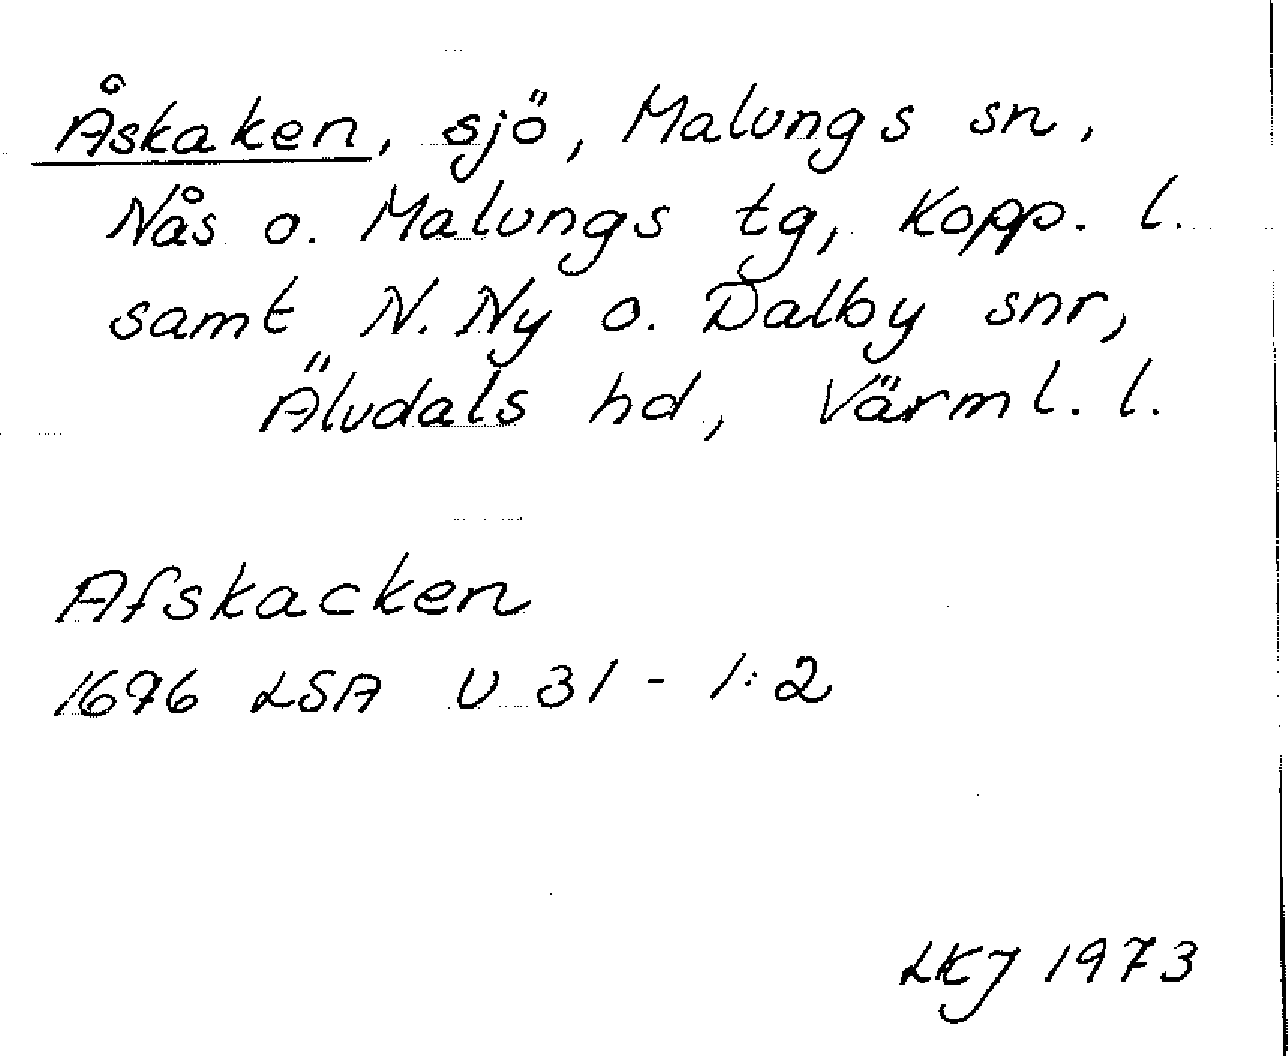 Åskaken, sjö, Malungs sn,
Nås o. Malungs tg, Kopp. l.
samt N. Ny o. Dalby snr,
Älvdals hd, Värml. l.
Afskacken
1696 LSA U 31 - 1:2
LKJ 1973